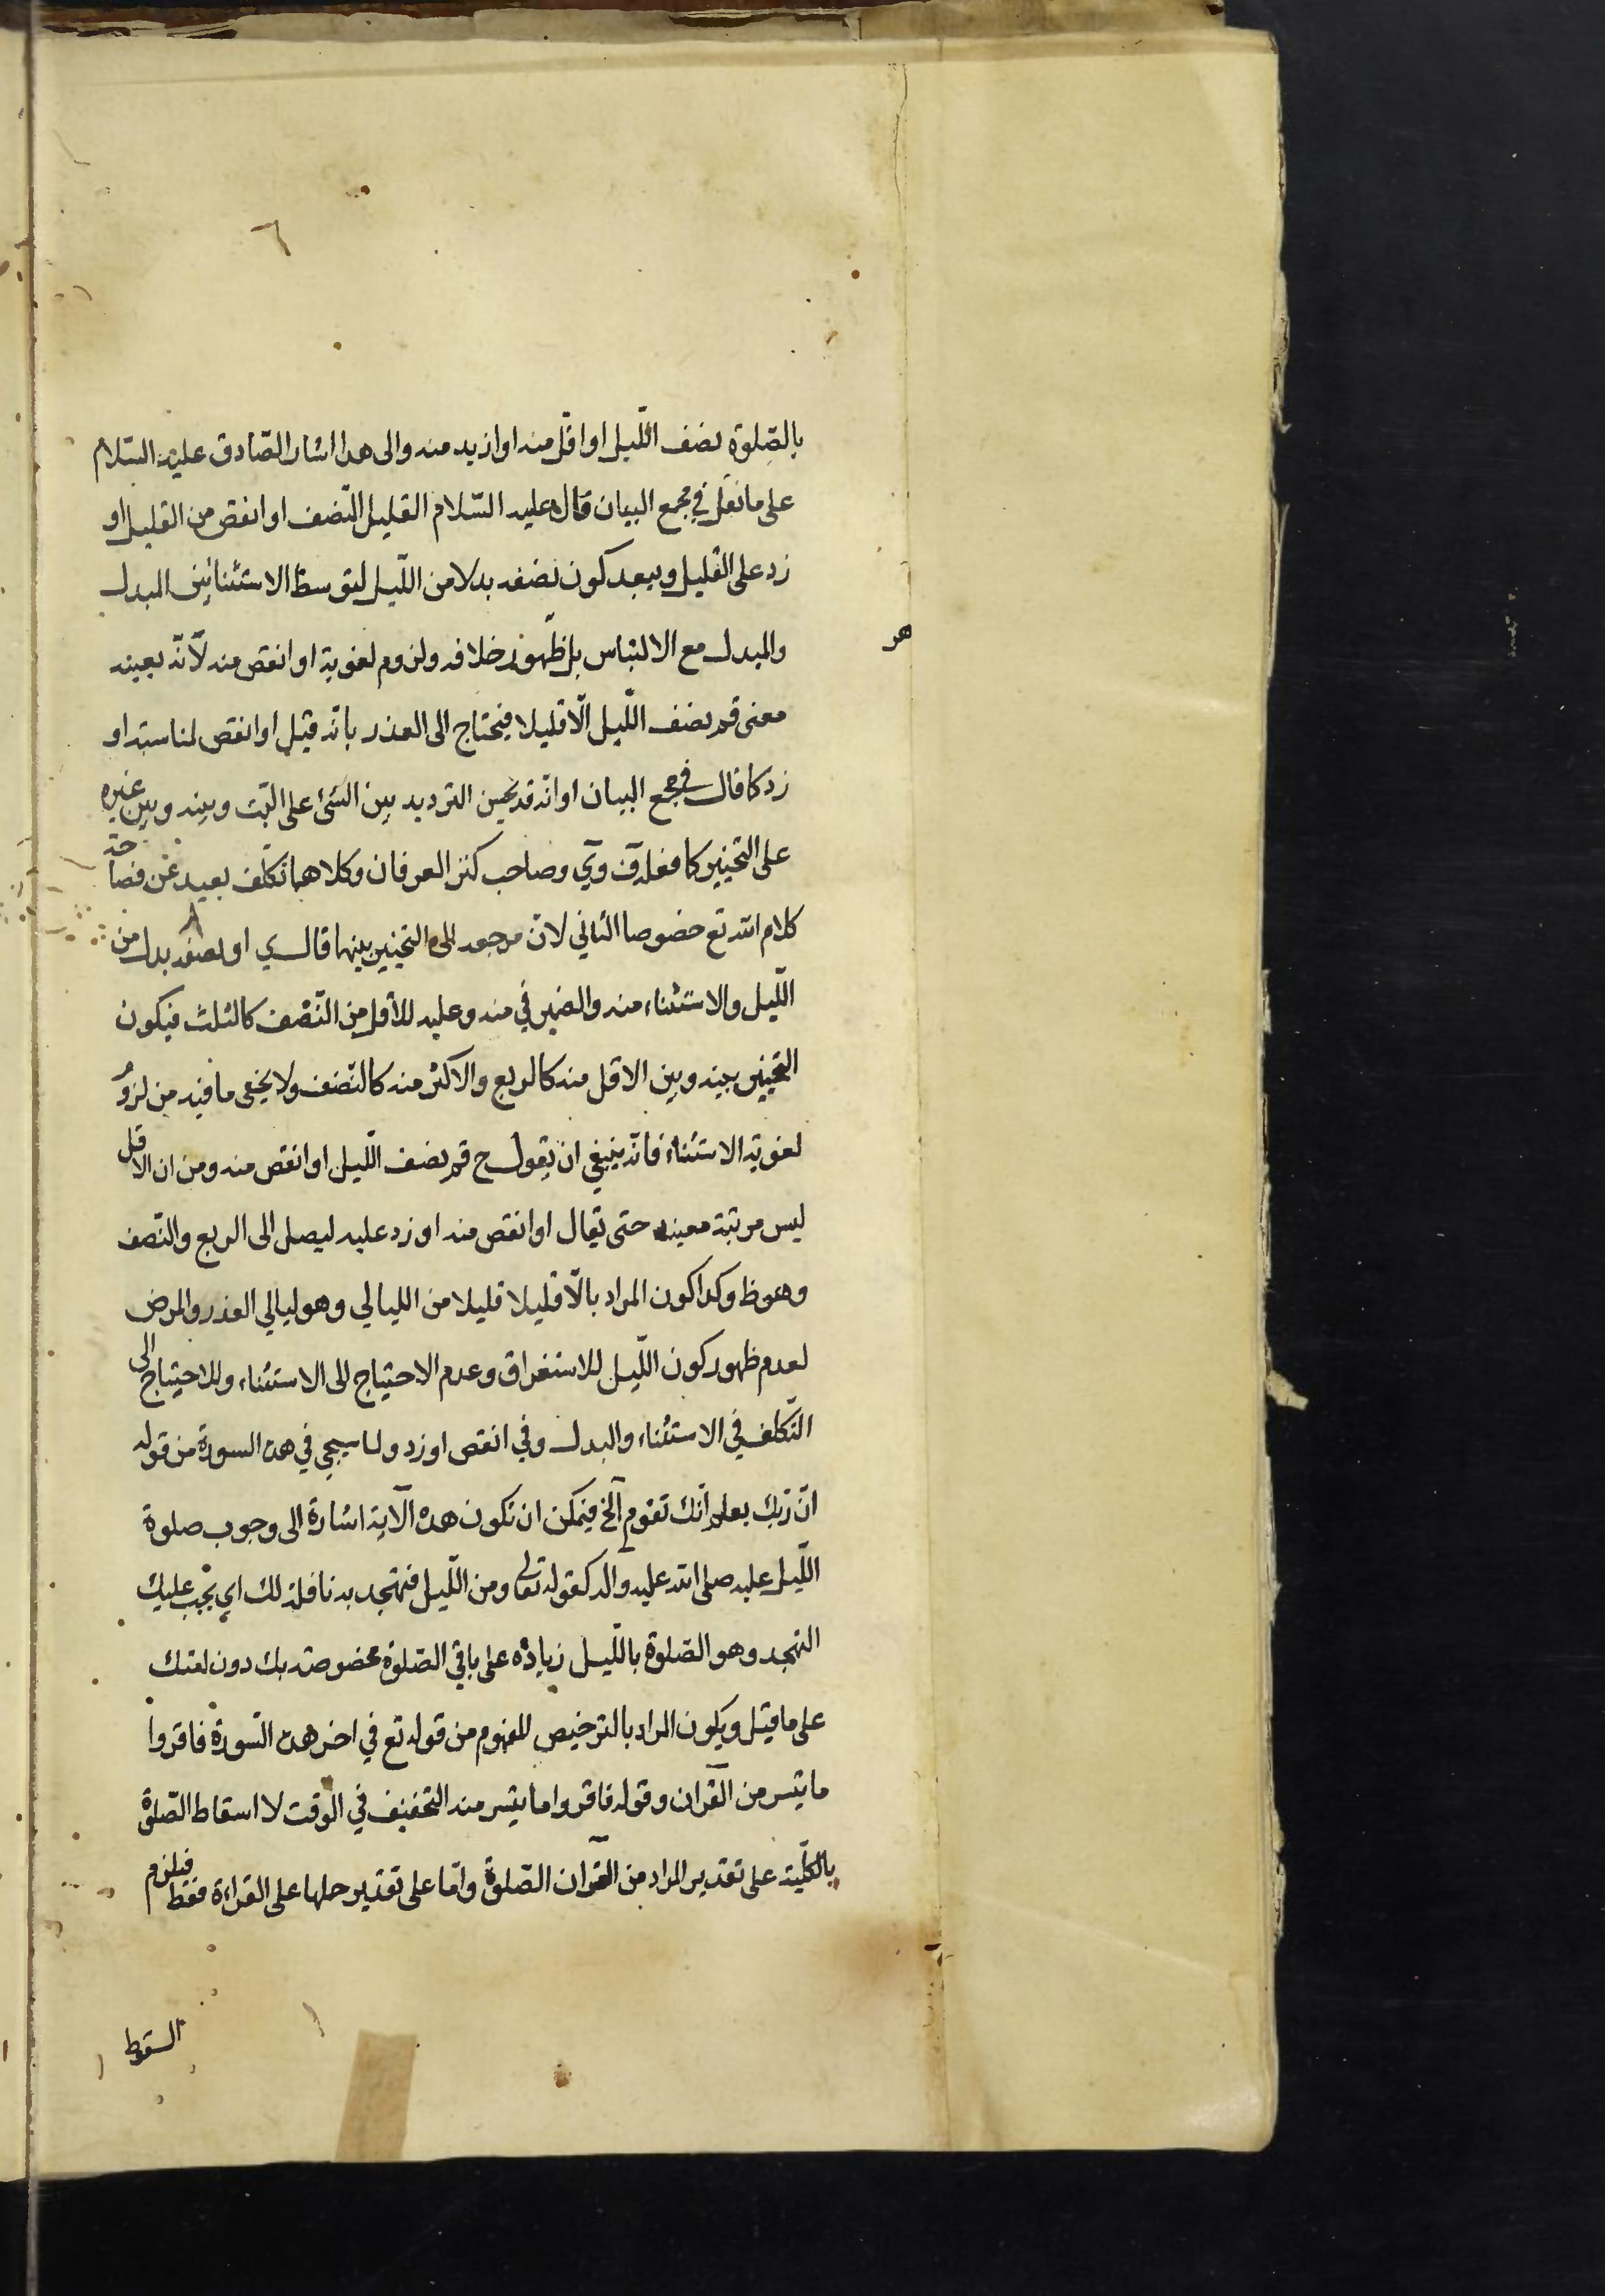 ٦
بالصّلوة نصف اللّيل او اقل منه او ازيد منه والى هذا اشار الصّادق عليه السّلام
على ما نقل في مجمع البيان قال عليه السّلام القليل النّصف او انقص من القليل او
زد على القليل ويبعد كون نصفه بدلا من اللّيل لتوسط الاستثنا بين المبدل
والمبدل مع الالتباس بل ظهور خلافه ولزوم لغوية او انقص منه لانّه بعينه
هر
معنى قم نصف اللّيل الّا قليلا فيحتاج الى العذر بانّه قيل او انقص لمناسبة او
زد كما قال في مجمع البيان او انّه قد يحسن الترديد بين الشئ على البت وبينه وبين غيره
على التخيير كما فعله ف وي وصاحب كنز العرفان وكلاهما تكلّف بعيد عن فصاحة
كلام الله تع خصوصا الثاني لان مرجعه الى التخيير بينهما قال ي او نصفه بدل من
اللّيل والاستثناء منه والضمير في منه وعليه للأقل من النّصف كالثلث فيكون
التخيير بينه وبين الاقل منه كالربع والاكثر منه كالنّصف ولا يخفى ما فيه من لزوم
لغوية الاستثناء فانّه ينبغي ان يقول ح قم نصف اللّيل او انقص منه ومن ان الاقل
ليس مرتبة معينه حتى يقال او انقص منه او زد عليه ليصل الى الربع والنّصف
وهو ظ وكذا كون المراد بالّا قليلا قليلا من الليالي وهو ليالي العذر والمرض
لعدم ظهور كون اللّيل للاستغراق وعدم الاحتياج الى الاستثناء وللاحتياج الى
التّكلف في الاستثناء والبدل وفي انقص او زد ولما سيجي في هذه السورة من قوله
انّ ربّك يعلم أنّك تقوم آلخ فيمكن ان تكون هذه الآية اشارة الى وجوب صلوة
اللّيل عليه صلى الله عليه واله كقوله تعالى ومن اللّيل فتهجد به نافلة لك اي يجب عليك
التهجد وهو الصّلوة باللّيل زيادة على باقي الصّلوة مخصوصة بك دون امتك
على ما قيل ويكون المراد بالترخيص المفهوم من قوله تع في اخر هذه السّورة فاقروا
ما تيسر من القرآن وقوله فاقروا ما تيسر منه التخفيف في الوقت لا اسقاط الصّلوة
بالكلّية على تقدير المراد من القرآن الصّلوة وامّا على تقدير حملها على القراءة فقط فيلزم
السقوط